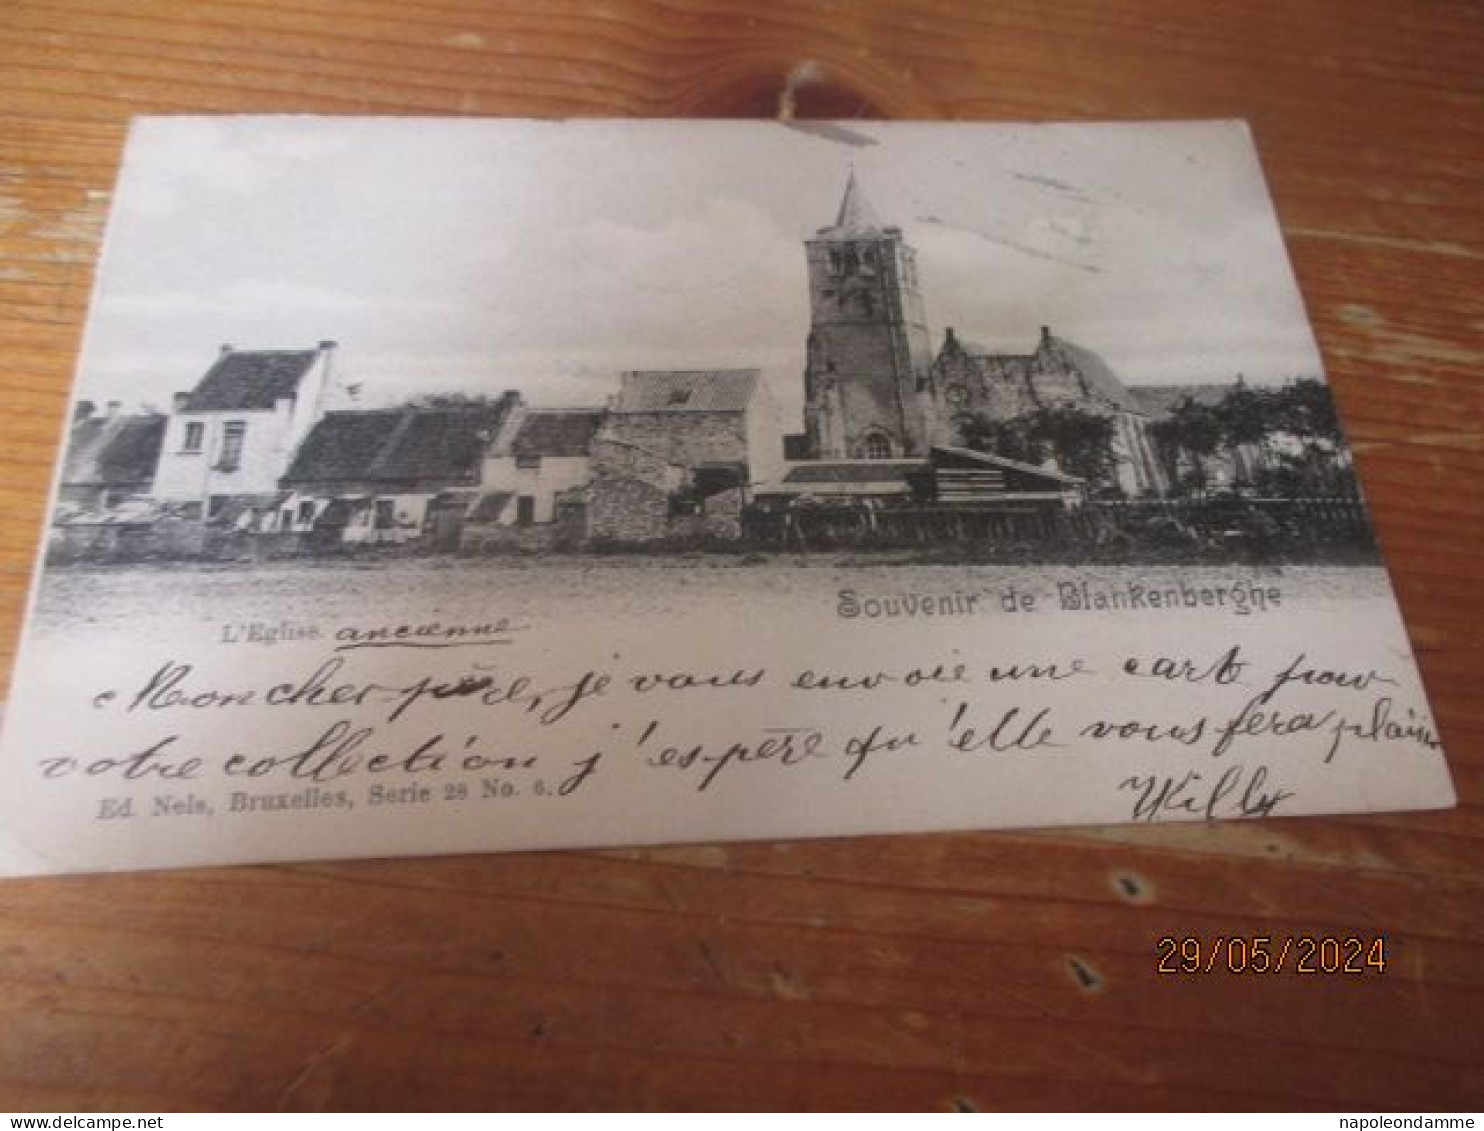 Souvenir de Blankenberghe
L'Eglise ancienne
Mon cher père, je vous envoie une cart pour
votre collection j'espère qu'elle vous fera plaisir
Willy
Ed. Nels, Bruxelles, Serie 28 No. 6.
29/05/2024
napoleondamme